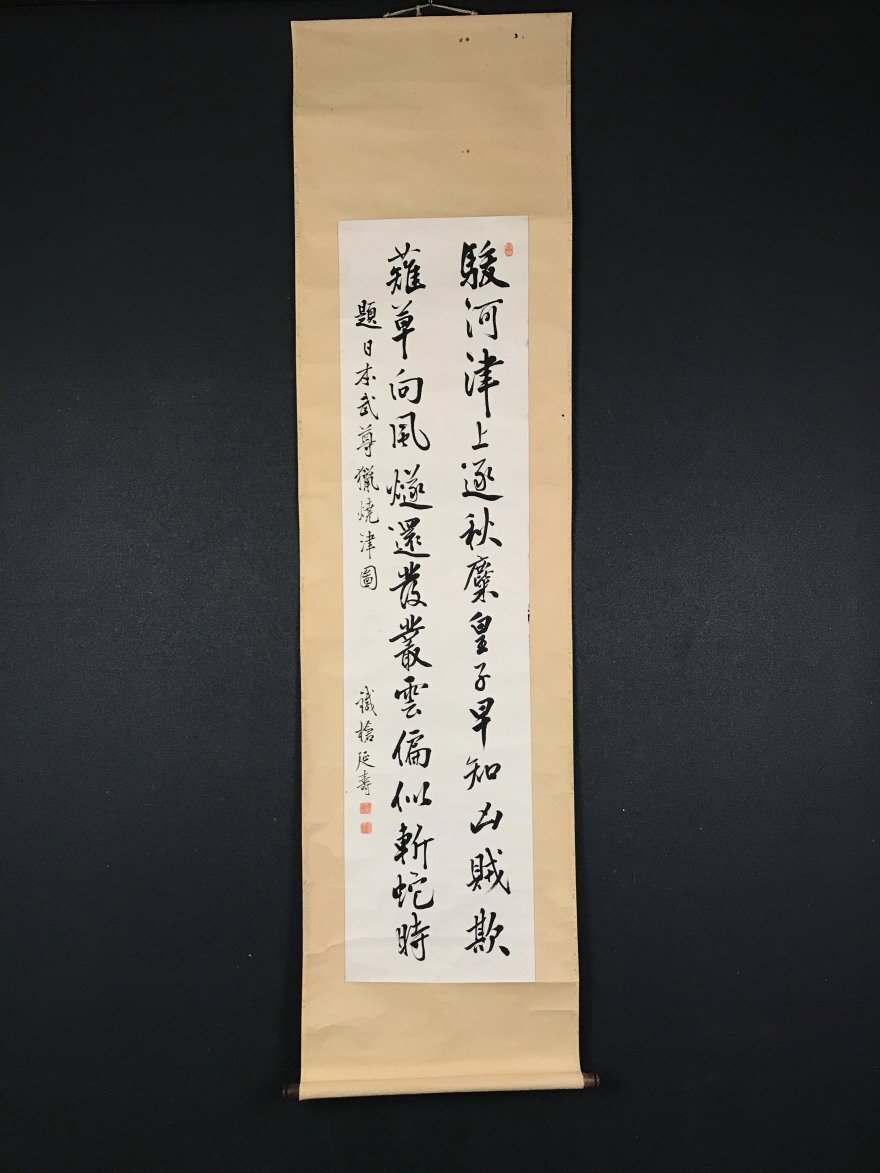 駿河津上逐秋麋皇子早知凶賊欺
薙草向風燧還發叢雲偏似斬蛇時
題日本武尊獵燒津圖
鐵槍延壽